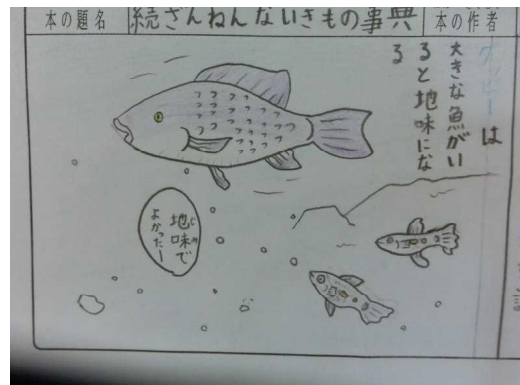 本の題名
続ざんねんないきもの事典
本の作者
グッピーは
大きな魚がい
ると地味にな
る
地味で
じみ
よかったー